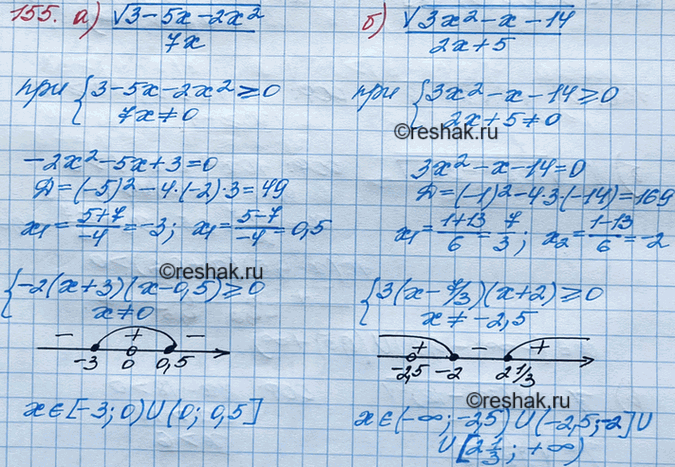 155. а) √3-5x-2x² / 7x
при { 3-5x-2x² ≥ 0
7x ≠ 0
-2x²-5x+3=0
Д=(-5)²-4·(-2)·3=49
x₁=5+7/-4=-3; x₁=5-7/-4=0,5
©reshak.ru
{ -2(x+3)(x-0,5) ≥ 0
x≠0
- + -
-3 0 0,5
x∈[-3;0)U(0;0,5]
б) √3x²-x-14 / 2x+5
при { 3x²-x-14 ≥ 0
2x+5≠0
©reshak.ru
3x²-x-14=0
Д=(-1)²-4·3(-14)=169
x₁=1+13/6=7/3; x₂=1-13/6=-2
{ 3(x-7/3)(x+2) ≥ 0
x≠-2,5
©reshak.ru
+ - +
-2,5 -2 2 1/3
x∈(-∞;-2,5)U(-2,5;-2]U
U[2 1/3;+∞)